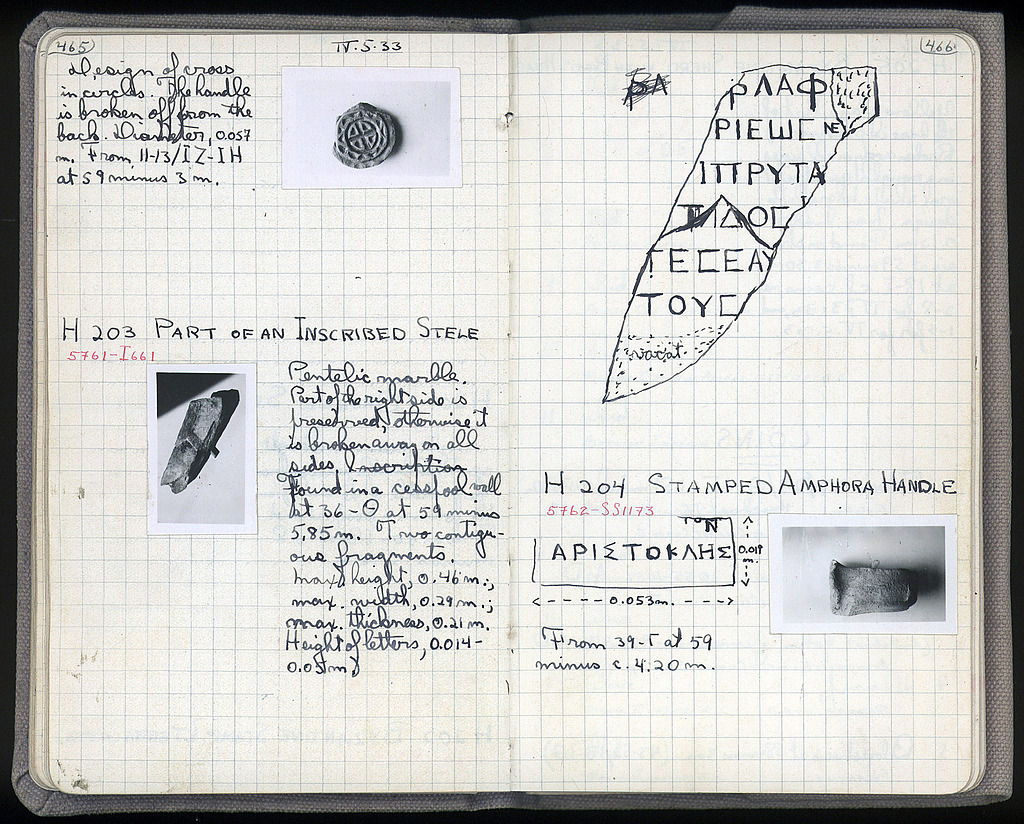 465
IV·5·33
Design of cross
in circles. The handle
is broken off from the
back. Diameter, 0.057
m. From 11-13/ΙΖ-ΙΗ
at 59 minus 3 m.
H 203 PART OF AN INSCRIBED STELE
5761-I661
Pentelic marble.
Part of the right side is
preserved, otherwise it
is broken away on all
sides. Inscription
Found in a cesspool wall
at 36-Θ at 59 minus
5.85m. Two contigu-
ous fragments.
Max. height, 0.46 m.;
max. width, 0.29 m.;
max. thickness, 0.21 m.
Height of letters, 0.014-
466
ΛΑΦ
ΡΙΕΩΣ ΝΕ
ΙΠΡΥΤΑ
ΙΔΟΣ
ΓΕΣΕΑΥ
ΤΟΥΣ
vacat.
H 204 STAMPED AMPHORA HANDLE
5762-SS1173
ΑΡΙΣΤΟΚΛΗΣ
0.019
m.
0.053m.
From 39-Γ at 59
minus c. 4.20 m.